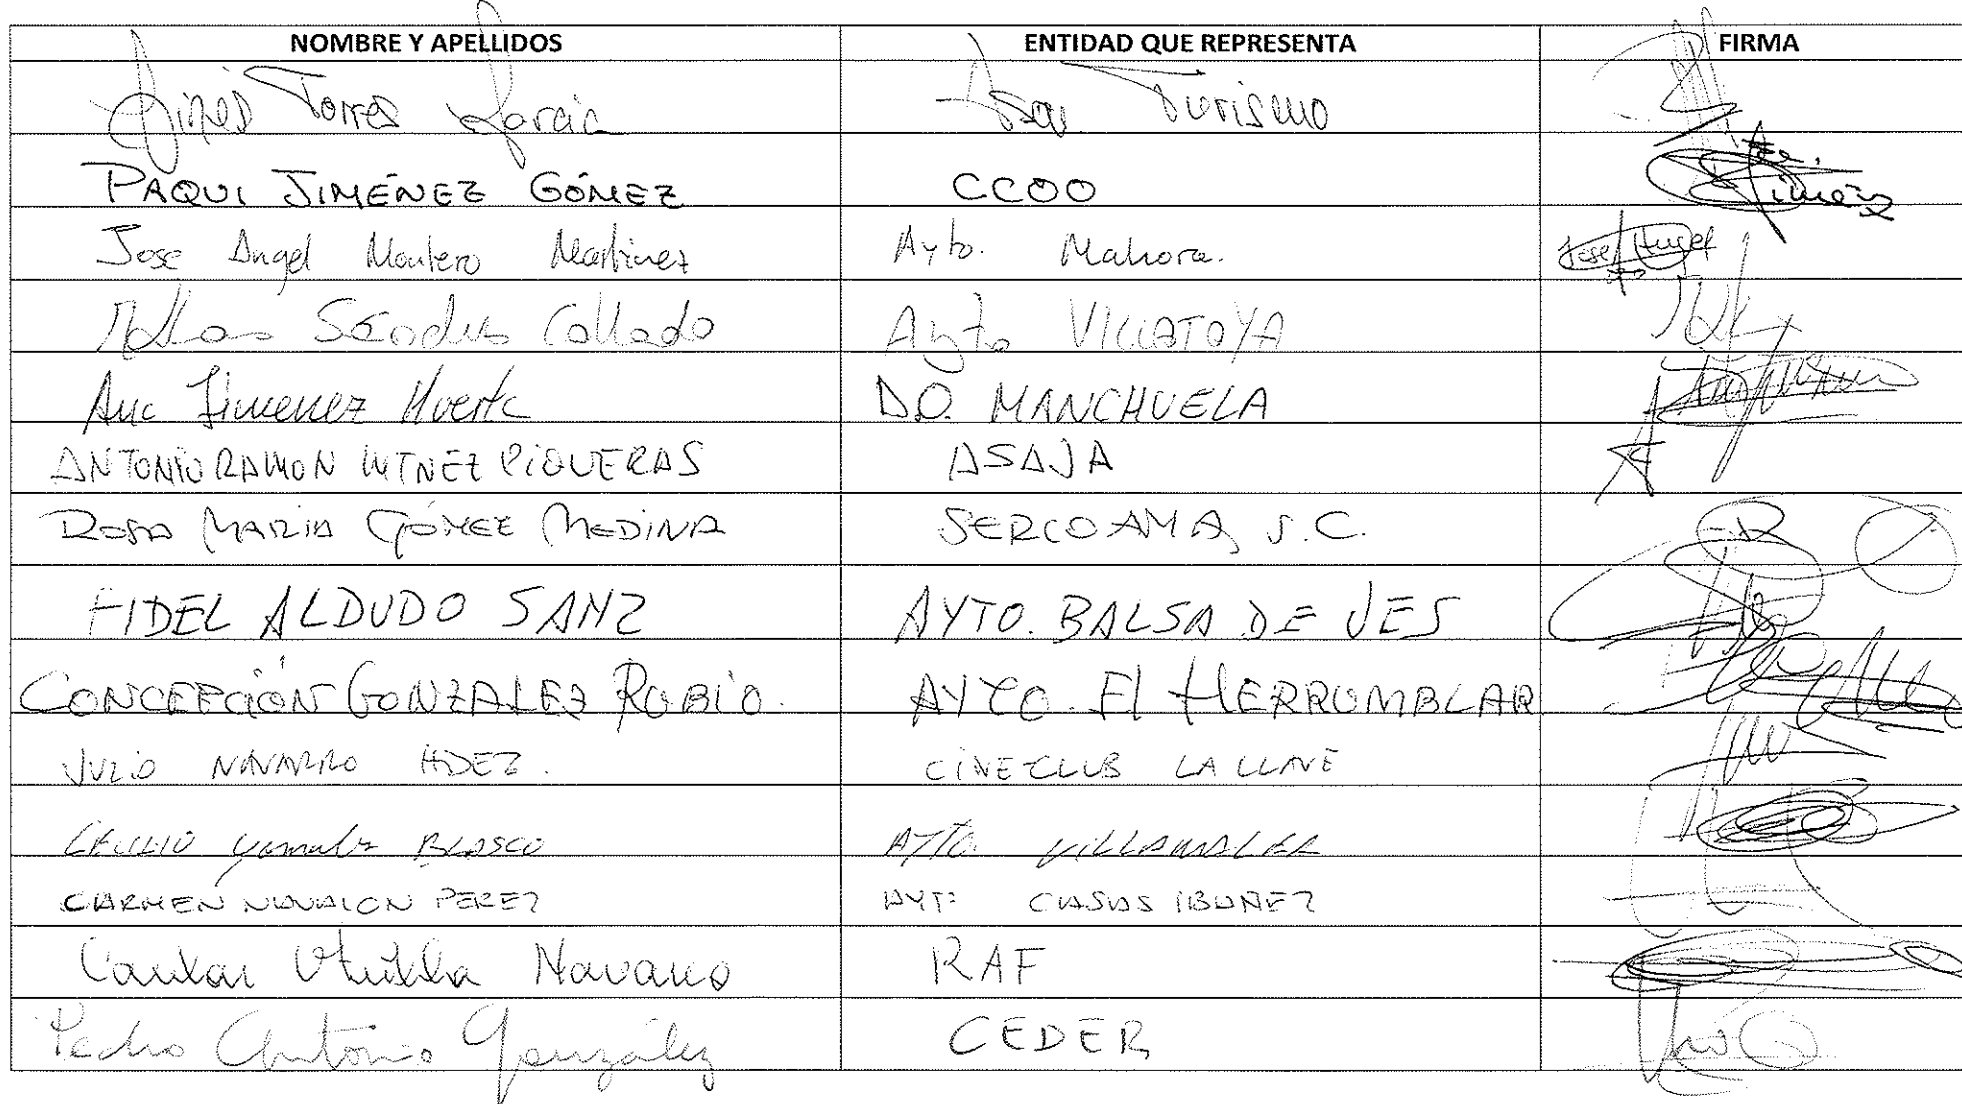 NOMBRE Y APELLIDOS ENTIDAD QUE REPRESENTA FIRMA
Ginés Torres García Asoc Turismo
PAQUI JIMÉNEZ GÓMEZ CCOO Fdo. Jiménez
Jose Angel Montero Martinez Ayto. Mahora. Jose Angel
Sánchez Collado Ayto VILLATOYA
Ana Jimenez Huerta D.O. MANCHUELA
ANTONIO RAMON MTNEZ PIQUERAS ASAJA
ROSA MARIA GÓMEZ MEDINA SERCOAMA, S.C.
FIDEL ALDUDO SANZ AYTO. BALSA DE VES
CONCEPCIÓN GONZALEZ RUBIO. AYTO. El HERRUMBLAR
JULIO NAVARRO HDEZ. CINECLUB LA LLAVE
CECILIO González BLASCO AYTO. VILLAMALEA
CARMEN NAVALON PEREZ AYTº CASAS IBAÑEZ
Navarro RAF
Pedro Antonio González CEDER